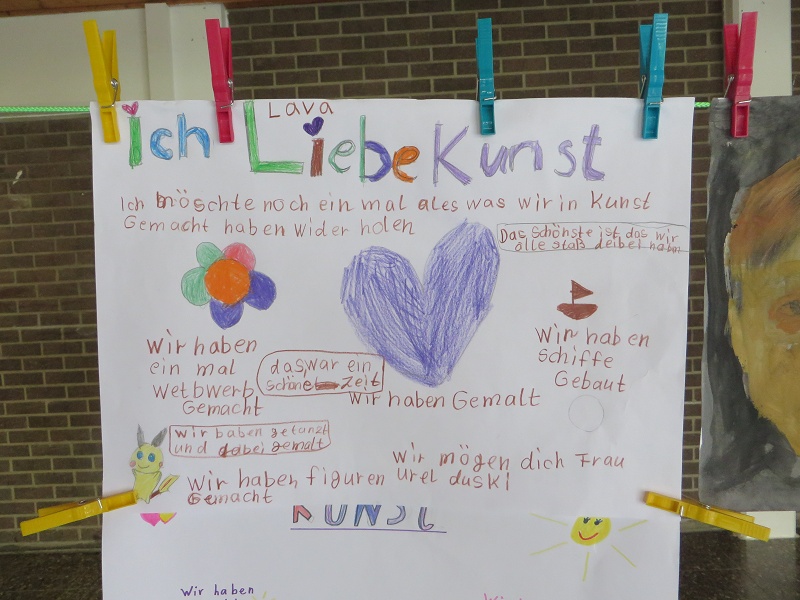 Lava
Ich Liebe Kunst
Ich möschte noch ein mal ales was wir in Kunst
Gemacht haben wider holen
Das schönste ist das wir
alle staß deibel haben
wir haben
ein mal
wetbwerb
Gemacht
das war ein
schöne Zeit
wir haben Gemalt
wir haben
schiffe
Gebaut
wir haben getanzt
und dabei gemalt
wir mögen dich Frau
urel duski
wir haben figuren
Gemacht
KUNST
wir haben